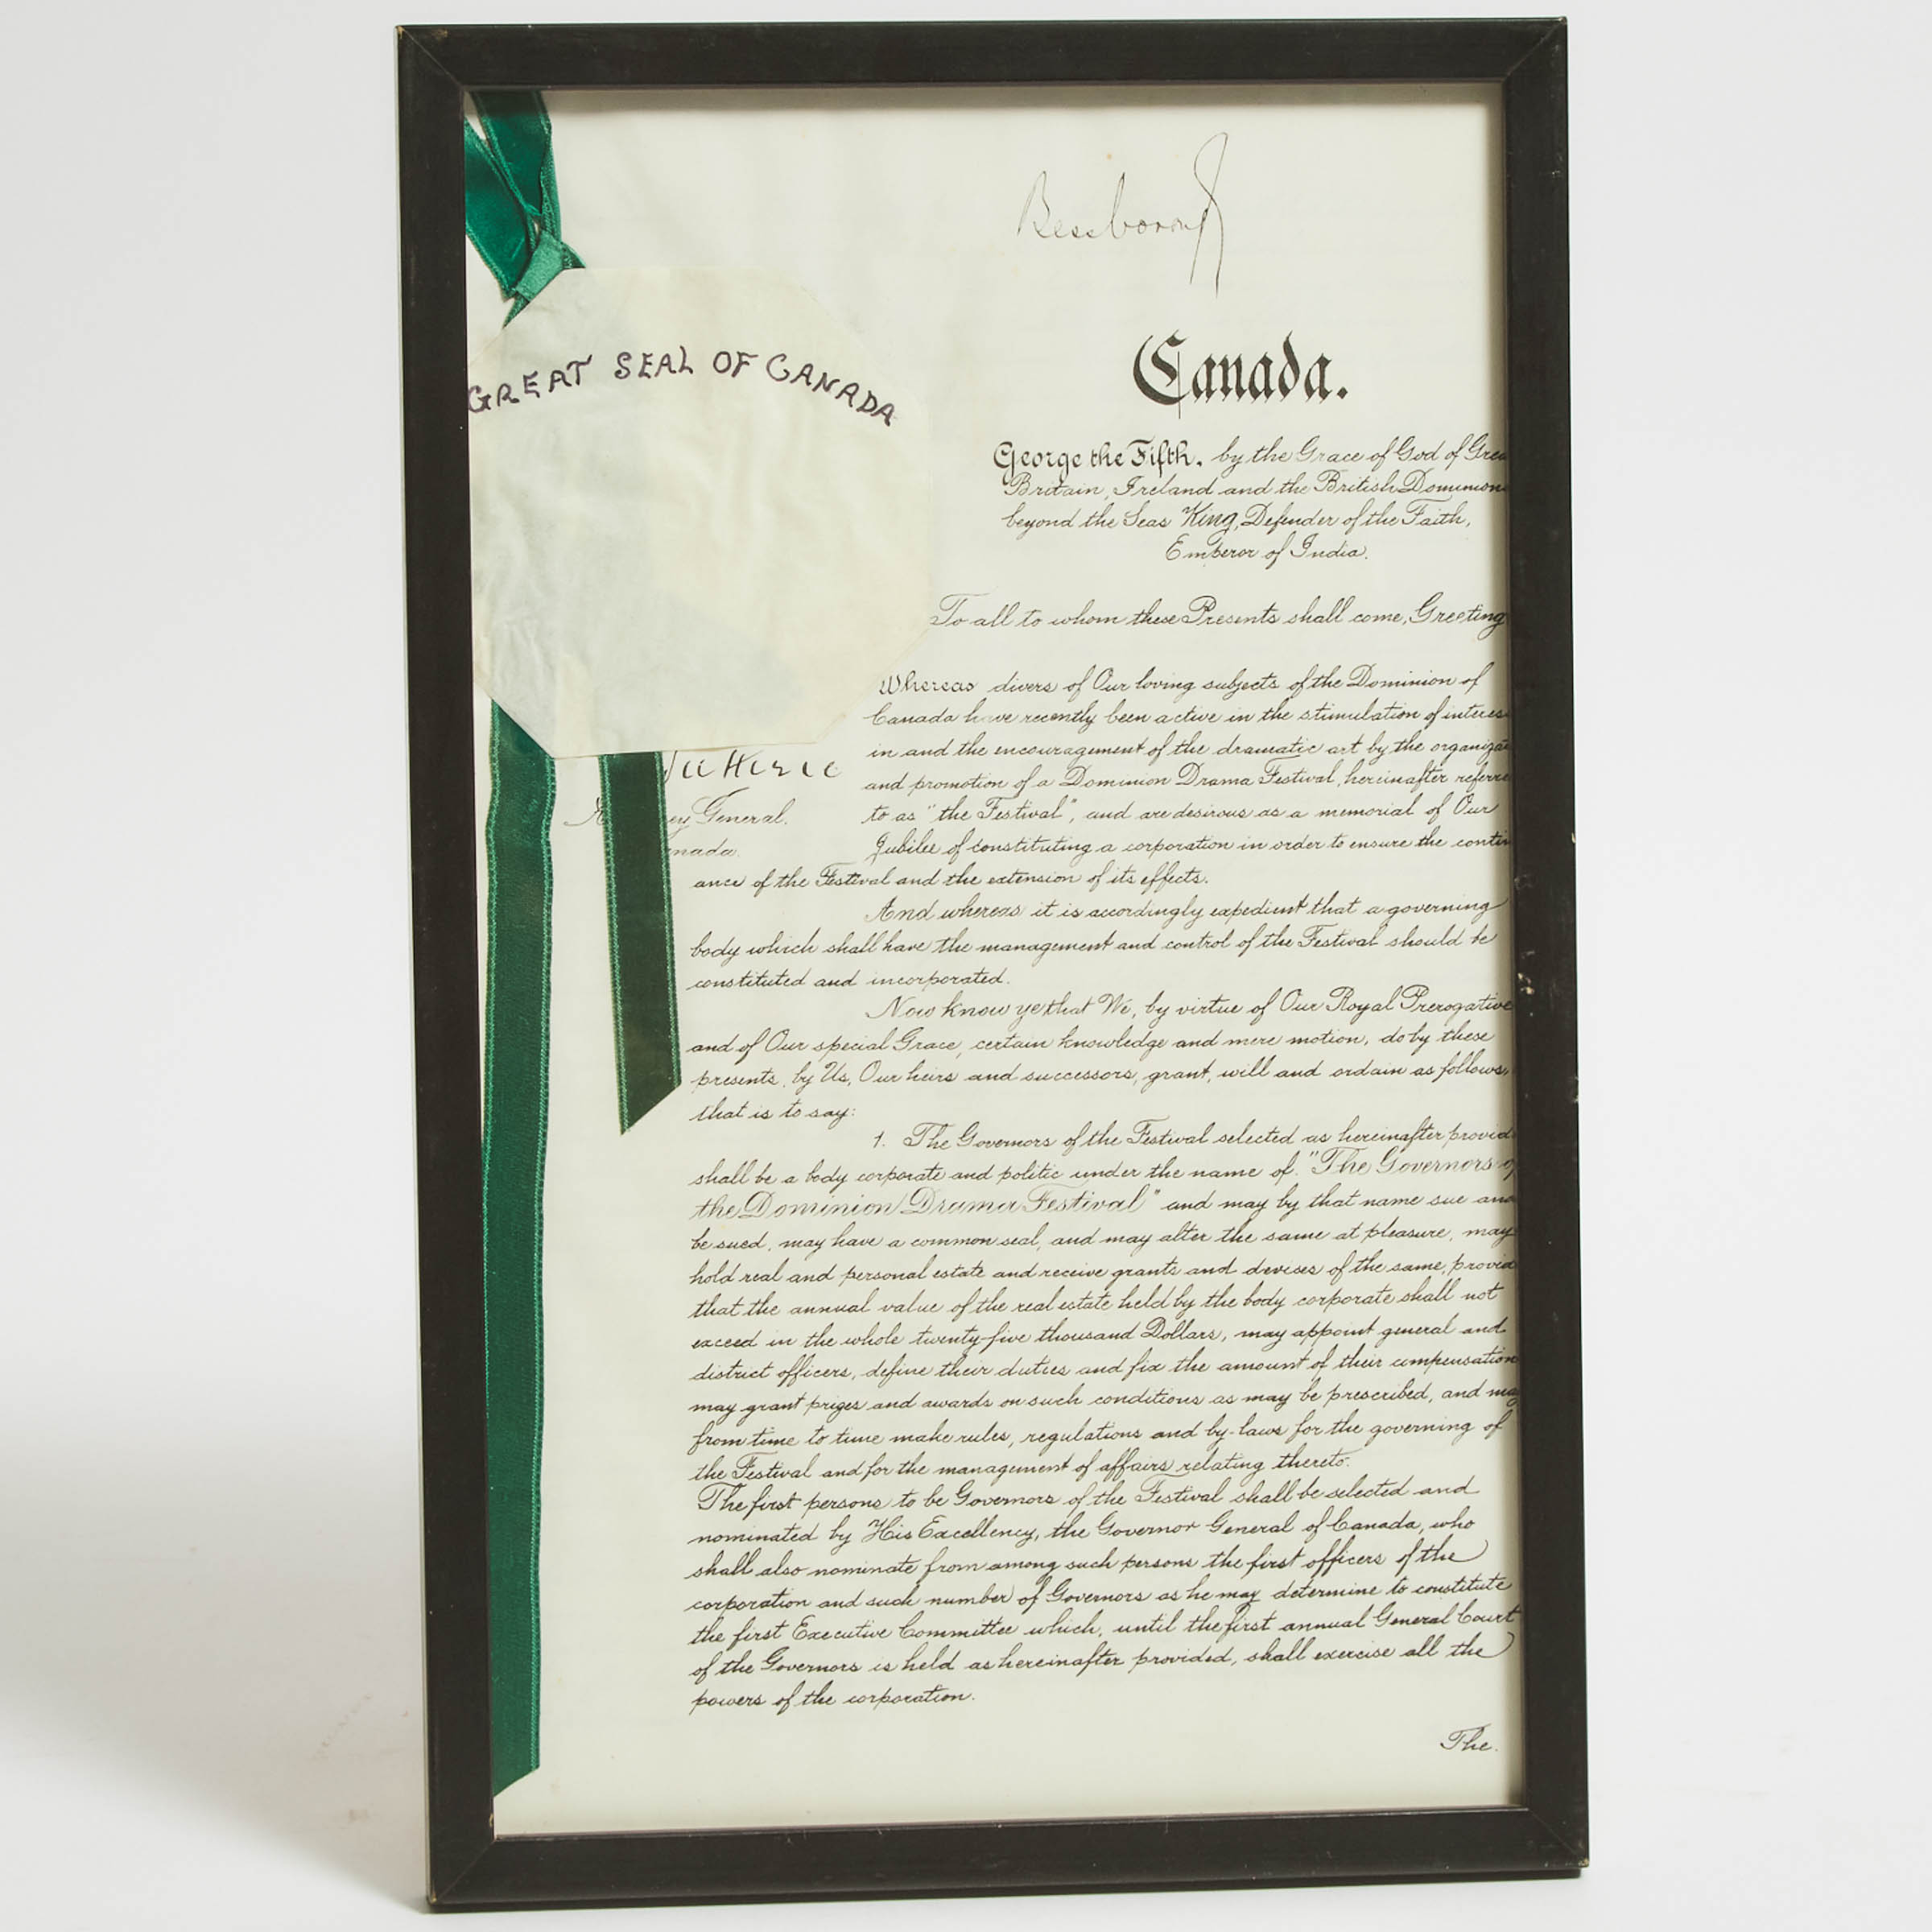 Bessborough
GREAT SEAL OF CANADA
Canada.
George the Fifth, by the Grace of God of Grea
Britain, Ireland and the British Dominions
beyond the Seas King, Defender of the Faith,
Emperor of India.
To all to whom these Presents shall come, Greeting
Whereas divers of Our loving subjects of the Dominion of
Canada have recently been active in the stimulation of interes
in and the encouragement of the dramatic art by the organizat
and promotion of a Dominion Drama Festival, hereinafter referre
to as "the Festival", and are desirous as a memorial of Our
Jubilee of constituting a corporation in order to ensure the contin
ance of the Festival and the extension of its effects.
ey General.
nada.
And whereas it is accordingly expedient that a governing
body which shall have the management and control of the Festival should be
constituted and incorporated.
Now know ye that We, by virtue of Our Royal Prerogative
and of Our special Grace, certain knowledge and mere motion, do by these
presents, by Us, Our heirs and successors, grant, will and ordain as follows,
that is to say:
1. The Governors of the Festival selected as hereinafter provid
shall be a body corporate and politic under the name of "The Governors of
the Dominion Drama Festival" and may by that name sue and
be sued, may have a common seal, and may alter the same at pleasure, may
hold real and personal estate and receive grants and devises of the same, provid
that the annual value of the real estate held by the body corporate shall not
exceed in the whole twenty-five thousand Dollars, may appoint general and
district officers, define their duties and fix the amount of their compensation
may grant prizes and awards on such conditions as may be prescribed, and may
from time to time make rules, regulations and by-laws for the governing of
the Festival and for the management of affairs relating thereto.
The first persons to be Governors of the Festival shall be selected and
nominated by His Excellency, the Governor General of Canada, who
shall also nominate from among such persons the first officers of the
corporation and such number of Governors as he may determine to constitute
the first Executive Committee which, until the first annual General Court
of the Governors is held as hereinafter provided, shall exercise all the
powers of the corporation.
The.